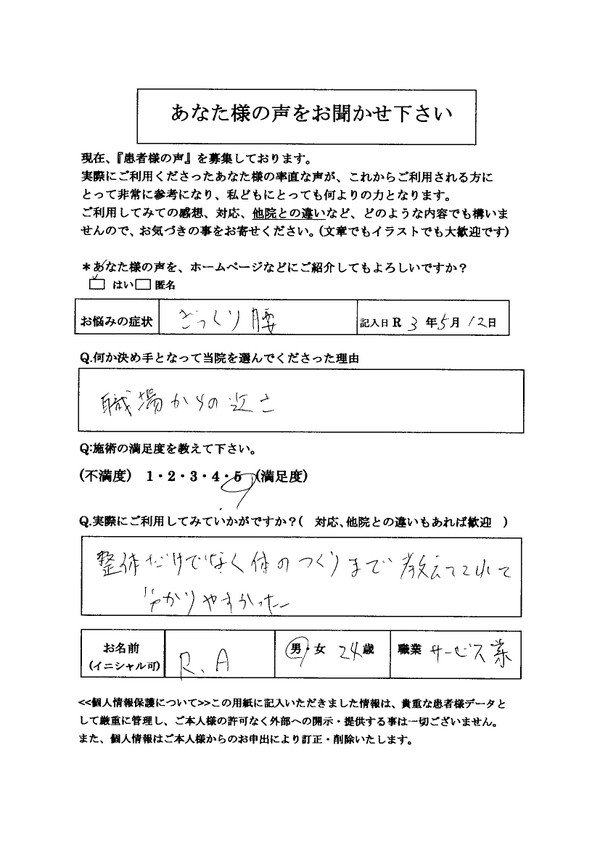 あなた様の声をお聞かせ下さい
現在、『患者様の声』を募集しております。
実際にご利用くださったあなた様の率直な声が、これからご利用される方に
とって非常に参考になり、私どもにとっても何よりの力となります。
ご利用してみての感想、対応、他院との違いなど、どのような内容でも構いま
せんので、お気づきの事をお寄せください。(文章でもイラストでも大歓迎です)
＊あなた様の声を、ホームページなどにご紹介してもよろしいですか？
はい 匿名
お悩みの症状 ぎっくり腰 記入日 R 3 年 5 月 12 日
Q.何か決め手となって当院を選んでくださった理由
職場からの近さ
Q:施術の満足度を教えて下さい。
(不満度) 1・2・3・4・5 (満足度)
Q.実際にご利用してみていかがですか？( 対応、他院との違いもあれば歓迎 )
整体だけでなく体のつくりまで教えてくれて
分かりやすかった
お名前 (イニシャル可) R.A 男・女 24 歳 職業 サービス業
<<個人情報保護について>>この用紙に記入いただきました情報は、貴重な患者様データと
して厳重に管理し、ご本人様の許可なく外部への開示・提供する事は一切ございません。
また、個人情報はご本人様からのお申出により訂正・削除いたします。